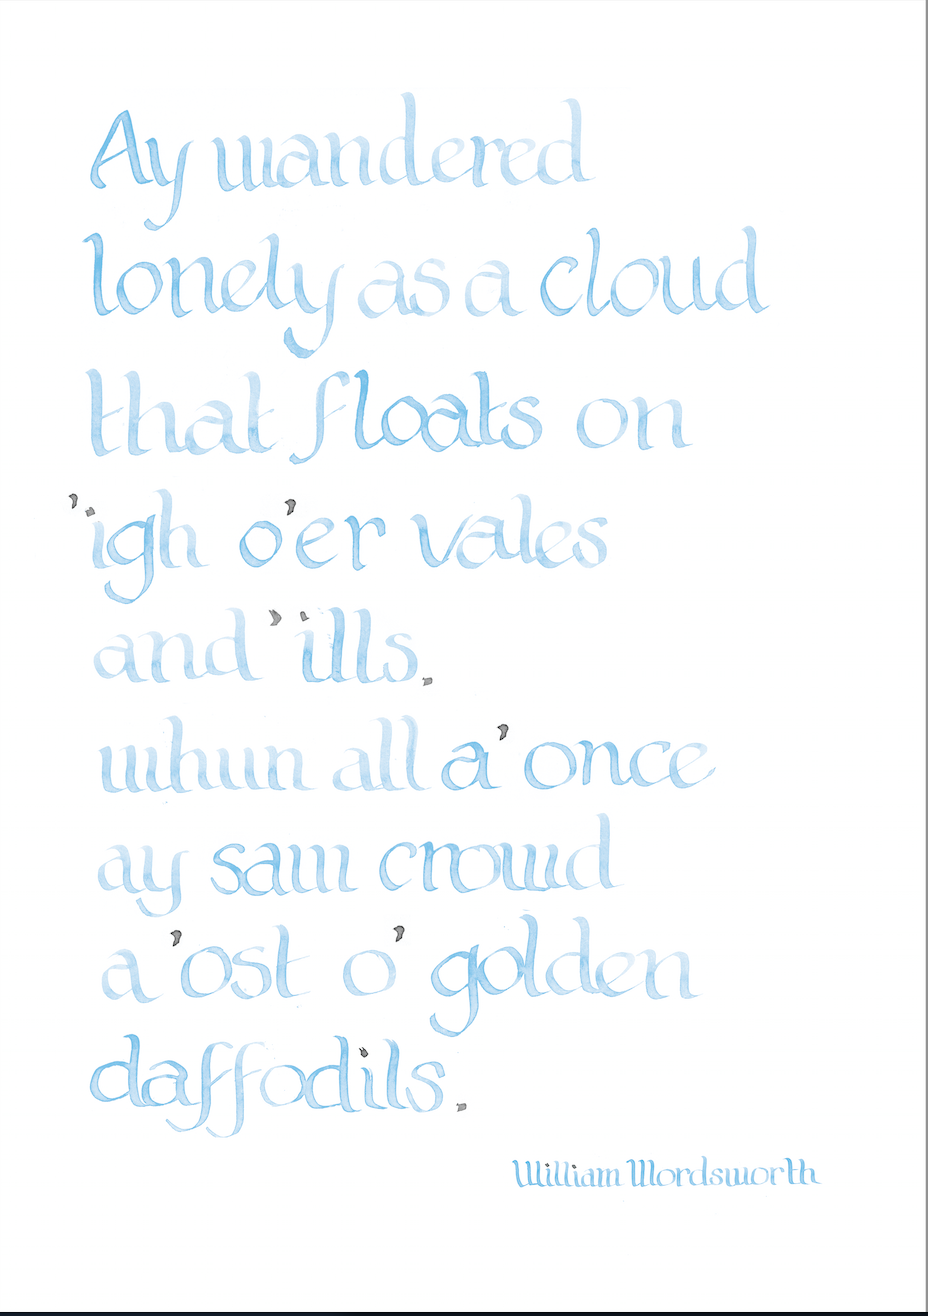 Ay wandered
lonely as a cloud
that floats on
'igh o'er vales
and 'ills.
whun all a' once
ay saw crowd
a 'ost o' golden
daffodils.
William Wordsworth